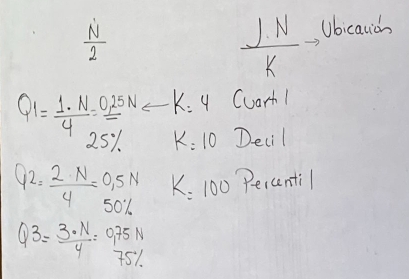 N/2
J.N/K → Ubicación
Q1= 1.N/4 = 0,25N ← K= 4 Cuartil
25% K= 10 Decil
Q2= 2.N/4 = 0,5N K= 100 Percentil
50%
Q3= 3.N/4 = 0,75 N
75%